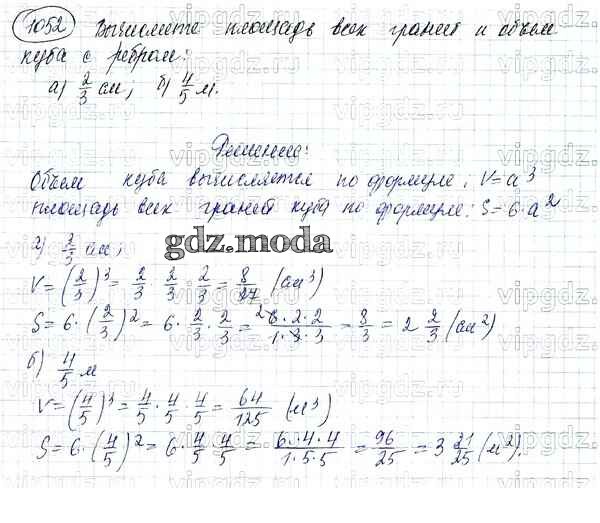 1052 Вычислите площадь всех граней и объем
куба с ребром:
а) 2/3 см; б) 4/5 м.
Решение:
Объем куба вычисляется по формуле: V=a³
площадь всех граней куба по формуле: S=6·a²
а) 2/3 см;
gdz.moda
V=(2/3)³=2/3 · 2/3 · 2/3 = 8/27 (см³)
S=6·(2/3)²=6· 2/3 · 2/3 = ² 6·2·2/1·3·3 = 8/3 = 2 2/3 (см²)
б) 4/5 м
V=(4/5)³= 4/5 · 4/5 · 4/5 = 64/125 (м³)
S=6·(4/5)²=6· 4/5 · 4/5 = 6·4·4/1·5·5 = 96/25 = 3 21/25 (м²).
vipgdz.ru